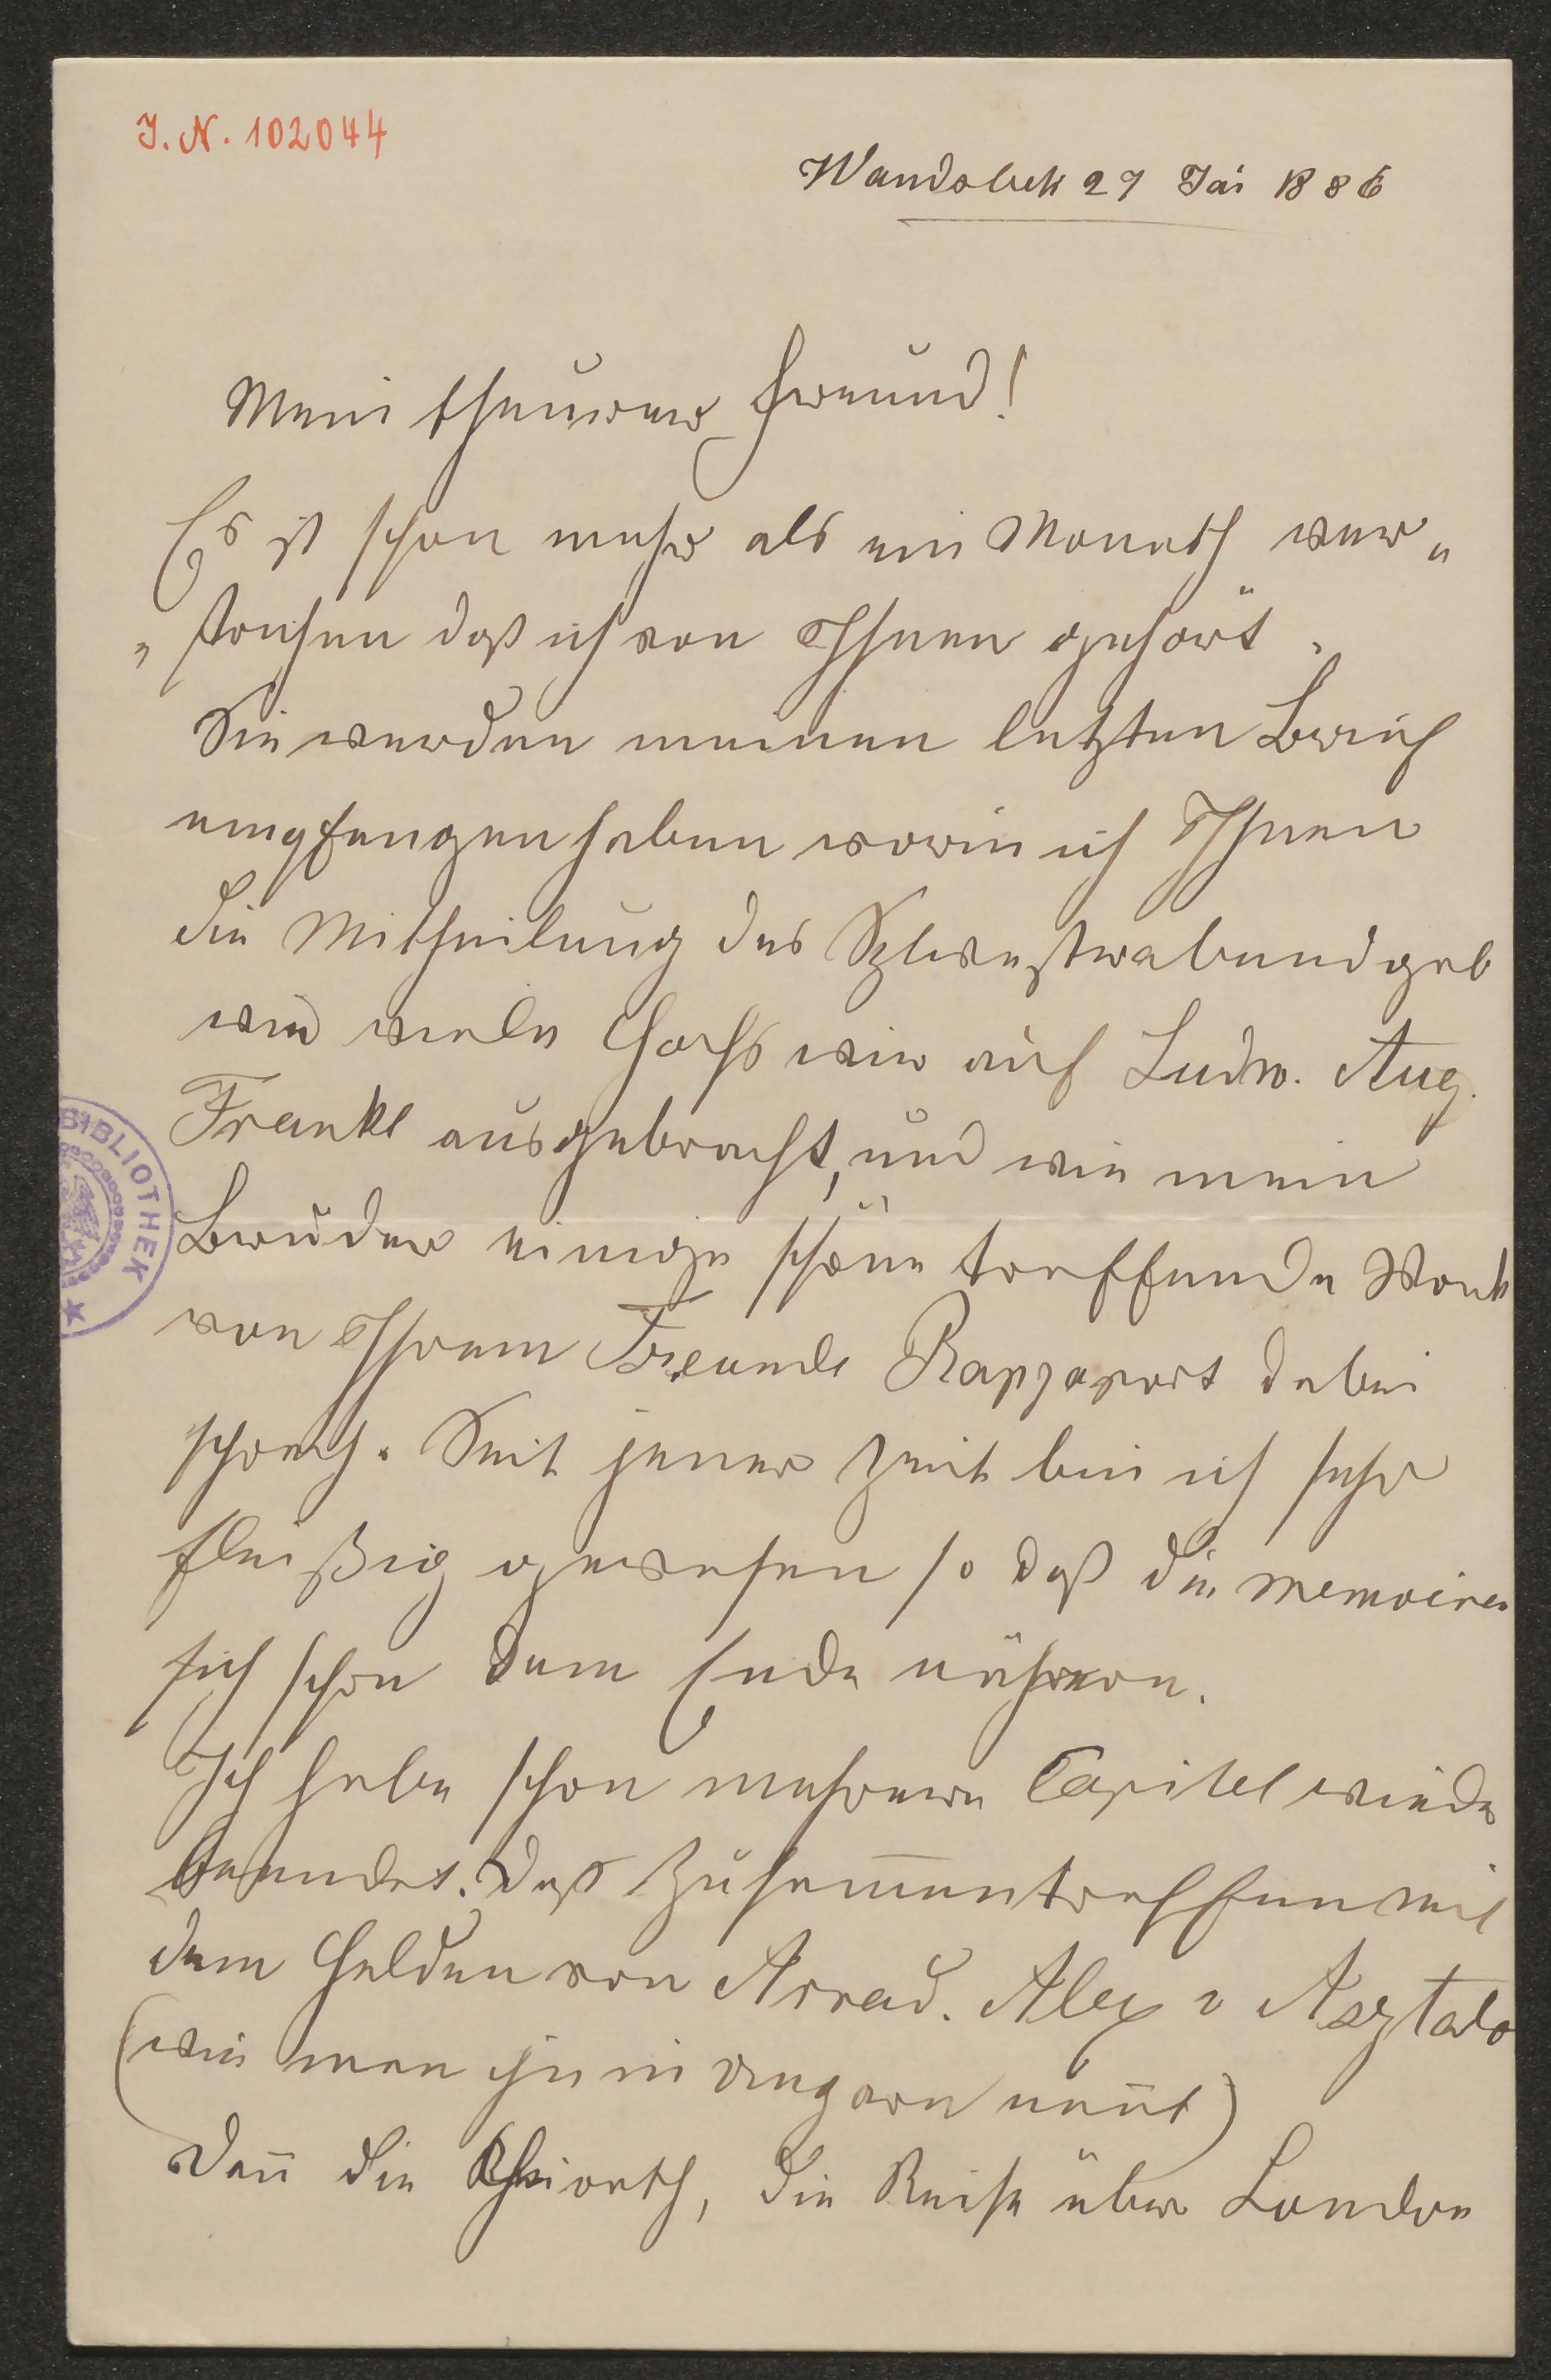 J. N. 102044
Wandsbek 27 Jai 1886
Mein theurer Freund!
Es ist schon mehr als ein Monath ver„
„strichen daß ich von Ihnen gehört.
Sie werden meinen letzten Brief
empfangen haben worin ich Ihnen
die Mittheilung des Sylvestrabend gab
wie viele Hochs wir auf Ludw. Aug.
Frankl ausgebracht, und wie mein
Bruder einige schöne treffende Worte
von Ihrem Freunde Rappaport dabei
sprach. Seit jener Zeit bin ich sehr
fleißig gewesen so daß die memoiren
sich schon dem Ende nähern.
Ich habe schon mehrere Capitel wieder
beendet. Daß Zusam̅entreffen mit
dem Helden von Arrad. Alex v Asztalo
(wie man ihn in Ungarn nen̅t)
Dan̅ die Heirath, die Reise über London
BIBLIOTHEK